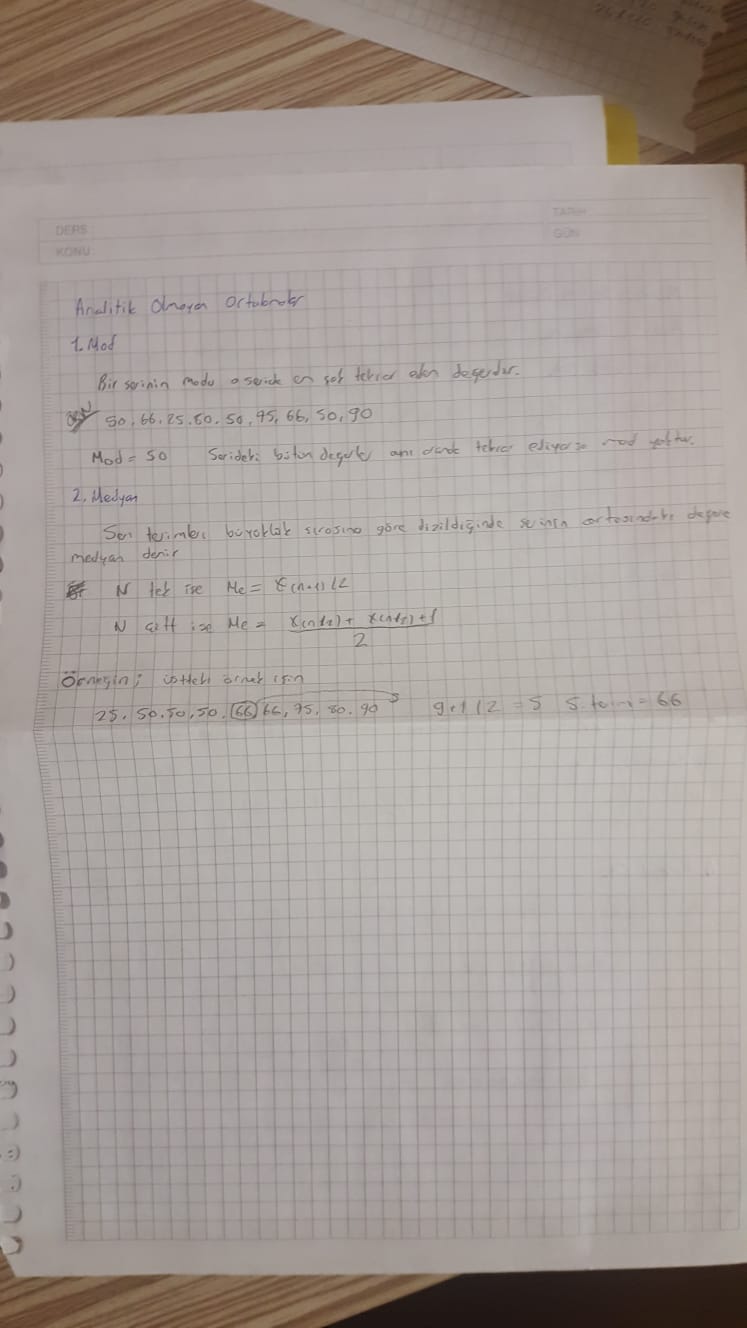 DERS
KONU
TARİH
GÜN
Analitik Olmayan Ortalamalar
1. Mod
Bir serinin modu o seride en çok tekrar eden değerdir.
50, 66, 25, 80, 50, 75, 66, 50, 90
Mod = 50 Serideki bütün değerler aynı oranda tekrar ediyorsa mod yoktur.
2. Medyan
Seri terimleri büyüklük sırasına göre dizildiğinde serinin ortasındaki değere
medyan denir
N tek ise Me = x(n+1)/2
N çift ise Me = x(n/2) + x(n/2)+1
2
Örneğin; üstteki örnek için
25, 50, 50, 50, 66, 66, 75, 80, 90 9+1/2 = 5 5. = 66